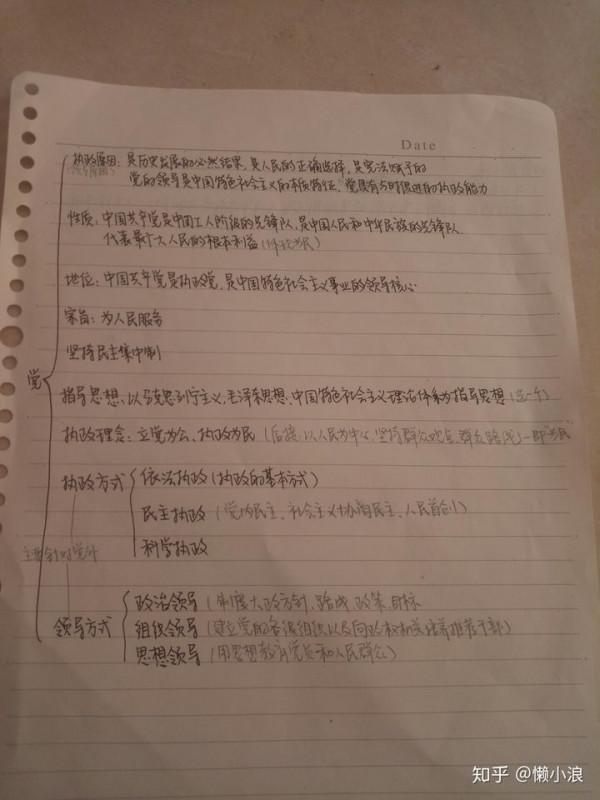 Date
执政原因：是历史发展的必然结果，是人民的正确选择，是宪法赋予的
党的领导是中国特色社会主义的本质特征，党具有与时俱进的执政能力
性质：中国共产党是中国工人阶级的先锋队，是中国人民和中华民族的先锋队
代表最广大人民的根本利益
地位：中国共产党是执政党，是中国特色社会主义事业的领导核心
宗旨：为人民服务
坚持民主集中制
党
指导思想：以马克思列宁主义、毛泽东思想、中国特色社会主义理论体系为指导思想（选一个）
执政理念：立党为公、执政为民（后接：以人民为中心，坚持群众观点，群众路线）
执政方式
依法执政（执政的基本方式）
民主执政（党内民主、社会主义协商民主、人民首创）
科学执政
主要针对党外
领导方式
政治领导（制度大政方针、路线、政策、目标
组织领导（建立党的各级组织以及向政权机关培养推荐干部）
思想领导（用思想教育党员和人民群众）
知乎 @懒小浪